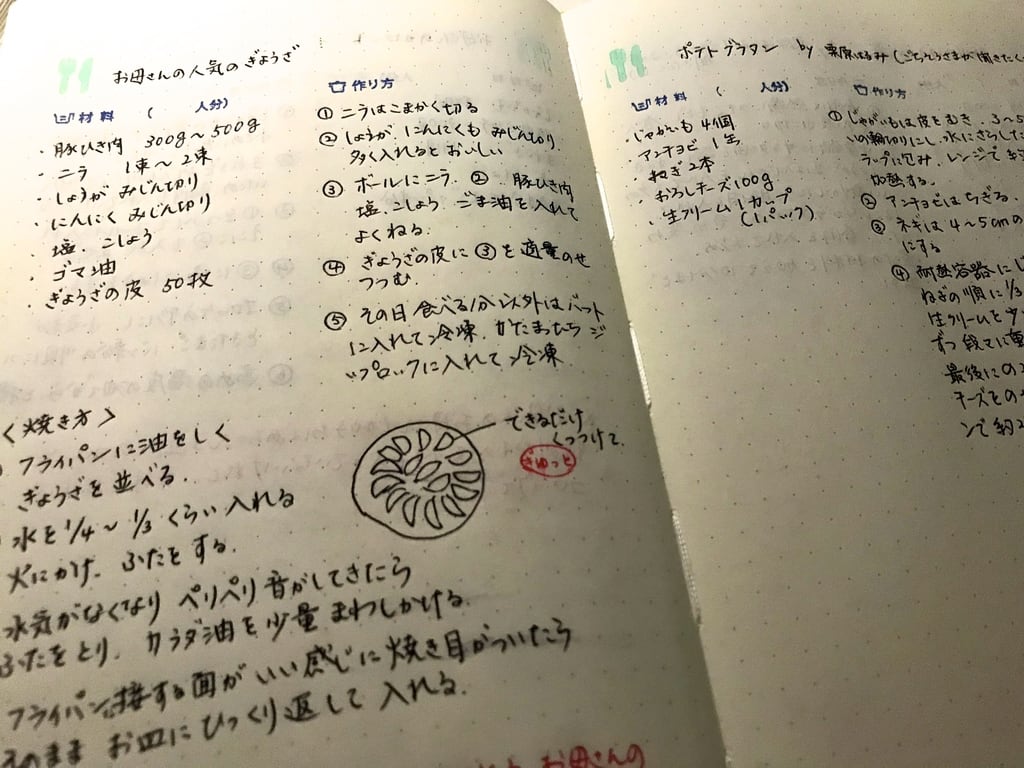 お母さんの人気のぎょうざ
材料 ( 人分)
・豚ひき肉 300g〜500g
・ニラ 1束〜2束
・しょうが みじん切り
・にんにく みじん切り
・塩、こしょう
・ゴマ油
・ぎょうざの皮 50枚
作り方
① ニラはこまかく切る
② しょうが、にんにくもみじん切り
多く入れるとおいしい
③ ボールにニラ、② 豚ひき肉
塩、こしょう ごま油を入れて
よくねる。
④ ぎょうざの皮に③を適量のせ
つつむ。
⑤ その日食べる分以外はバット
に入れて冷凍、かたまったらジ
ップロックに入れて冷凍
〈焼き方〉
フライパンに油をしく
ぎょうざを並べる。
水を1/4〜1/3くらい入れる
火にかけ、ふたをする。
水気がなくなり ペリペリ音がしてきたら
ふたをとり、カラダ油を少量まわしかける。
フライパンに接する面がいい感じに焼き目がついたら
そのまま お皿にひっくり返して入れる。
できるだけ
くっつけて、
ぎゅっと
お母さんの
ポテトグラタン by 栗原はるみ(ごちそうさまが聞きたく
材料 ( 人分)
・じゃがいも 4個
・アンチョビ 1缶
・ねぎ 2本
・おろしチーズ100g
・生クリーム 1カップ
(1パック)
作り方
① じゃがいもは皮をむき、3〜5
の輪切りにし、水にさらした
ラップに包み、レンジで
加熱する。
② アンチョビはちぎる。
③ ネギは4〜5cmの
にする
④ 耐熱容器にじ
ねぎの順に1/3
生クリームを少
ずつ 段てに重
最後にの
チーズとの
ンで約2